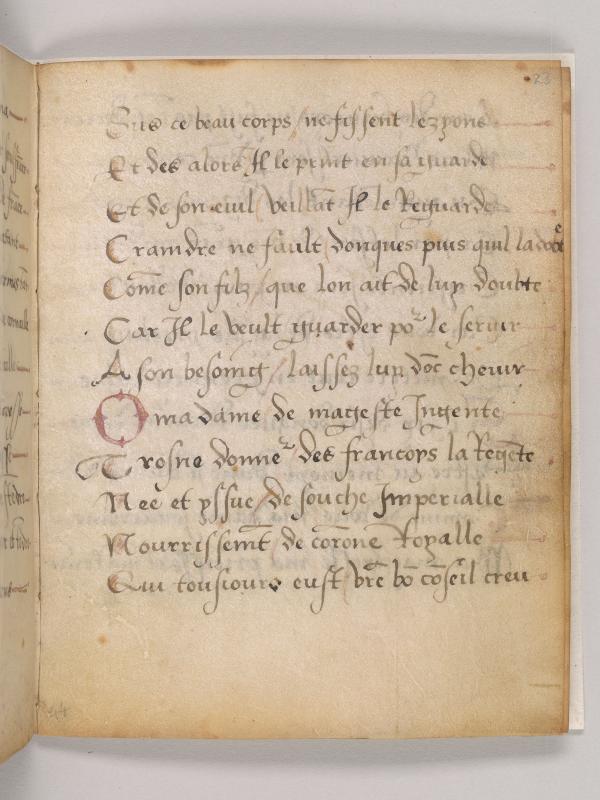 23
Sus ce beau corps / ne fissent lezyons
Et des alors Il le print en sa guarde
Et de son euil / veillāt Il le Reguarde
Craindre ne fault / donques puis quil la
Com̄e son filz / que lon ait de luy doubte
Car Il le veult guarder poʳ le seruir
A son besoing / laissez luy dōc cheuir
O ma dame de mageste Ingente
Trosne donneʳ des francoys la Regēte
Nee et yssue / de souche Imperialle
Nourrissem̄t de corōne Royalle
Qui tousiours eust / vr̄e bō cōseil creu